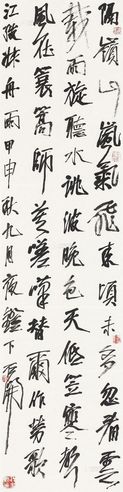 隔嶺山嵐氣飛來頃未多忽看雲
載雨旋聽水跳波晚色天低笠寒聲
風在蓑篙師莫嘆替爾作勞歌
江陵換舟雨甲申秋九月夜鐙下